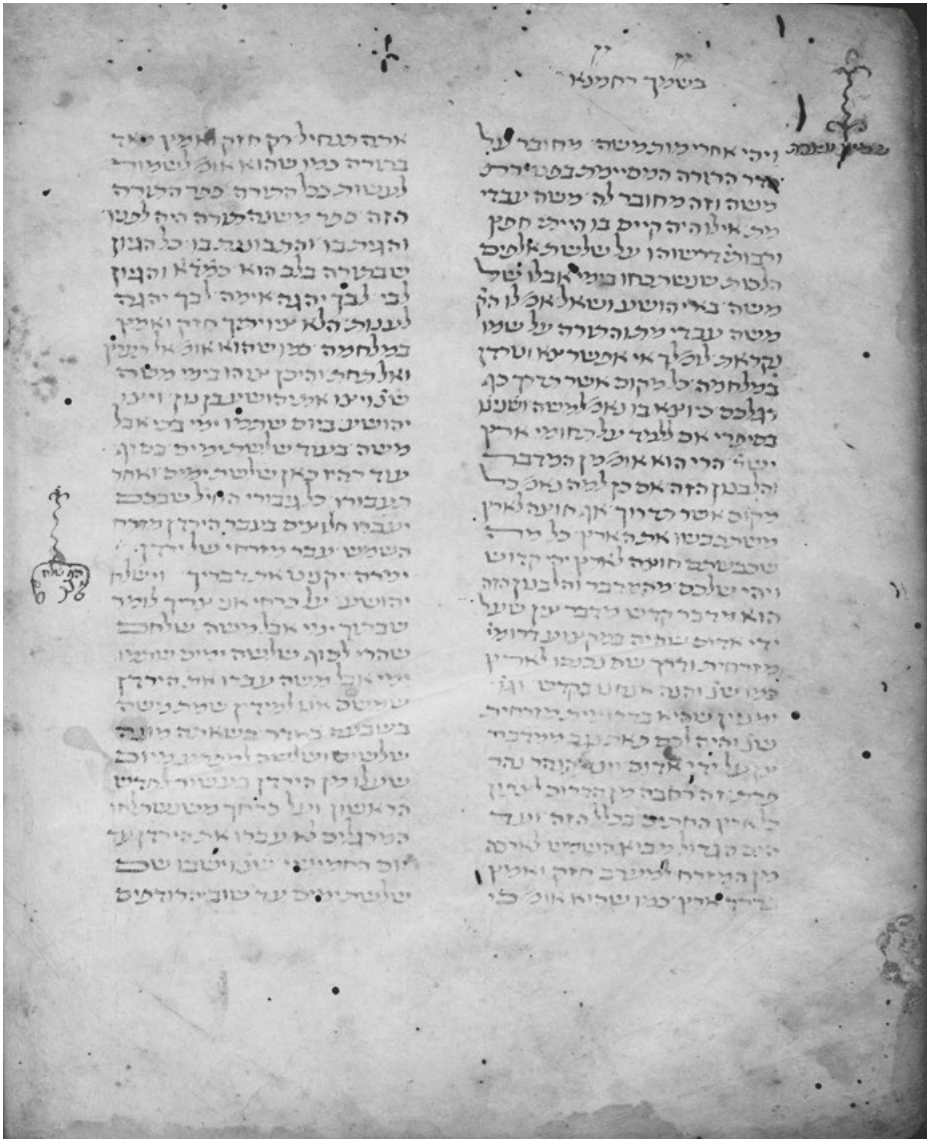 בשמך רחמנא
ויהי אחרי מות משה מחובר על
סדר התורה המסיימת בפטירת
משה וזה מחובר לה משה עבדי
מת אילו היה קיים בו הייתי חפץ
ורבותי דרשוהו על שלשת אלפים
הלכות שנשתכחו בימי אבלו של
משה בא יהושע ושאל אמ' לו הק'
משה עבדי מת והתורה על שמו
נקראת לומ' לך אי אפשר צא וטרדן
במלחמה כל מקום אשר תדרך כף
רגלכם כיוצא בו נאמ' למשה ושנינו
בסיפרי אם ללמד על תחומי ארץ
ישר' הרי הוא אומ' מן המדבר
והלבנון הזה אם כן למה נאמ' כל
מקום אשר תדרוך אף חוצה לארץ
משתכבשו את הארץ כל מה
שכבשתם חוצה לארץ יהי קדוש
ויהי שלכם מהמדבר והלבנון הזה
הוא מדבר קדש מדבר צין שעל
ידי אדום שהיה במקצוע דרומי
מזרחית ודרך שם נכנסו לארץ
כמו שנ' והנה אנחנו בקדש וגו'
ומנין שהיא בדרומית מזרחית
שנ' והיה לכם פאת נגב ממדבר
צין על ידי אדום ועד הנהר נהר
פרת זה רחבה מן הדרום לצפון
כל ארץ החתים בכלל הזה ועד
הים הגדול מבוא השמש לארכה
מן המזרח למערב חזק ואמץ
בדרך ארץ כמו שהוא אומ' כי
אתה תנחיל רק חזק ואמץ מאד
בתורה כמו שהוא אומ' לשמור
לעשות ככל התורה ספר התורה
הזה ספר משנה תורה היה לפניו
והגית בו והתבוננת בו כל הגיון
שבתורה בלב הוא כמ'ד'א' והגיון
לבי לבך יהגה אימה לבך יהגה
לענות הלא צויתיך חזק ואמץ
במלחמה כמו שהוא אומ' אל תערץ
ואל תחת והיכן צוהו בימי משה
שנ' ויצו את יהושע בן נון ויצו
יהושע ביום שתמו ימי בכי אבל
משה בעוד שלשת ימים בסוף
עוד דהיו כאן שלשת ימים ואחר
תעבורו כל גיבורי החיל שבכם
יעברו חלוצים בעבר הירדן מזרח
השמש עבר מזרחי של ירדן
ימרה יקניט את דבריך וישלח
יהושע על כרחי אני צריך לומר
שבתוך ימי אבל משה שלחם
שהרי לסוף שלשה ימים שתמו
ימי אבל משה עברו את הירדן
שמשם אנו למידין שמת משה
בשבעה באדר כשאתה מונה
שלשים ושלשה למפרע מיום
שעלו מן הירדן בעשור לחדש
הראשון ועל כרחך משנשתלחו
המרגלים לא עברו את הירדן עד
יום החמישי שנ' וישבו שם
שלשת ימים עד שוב הרודפים